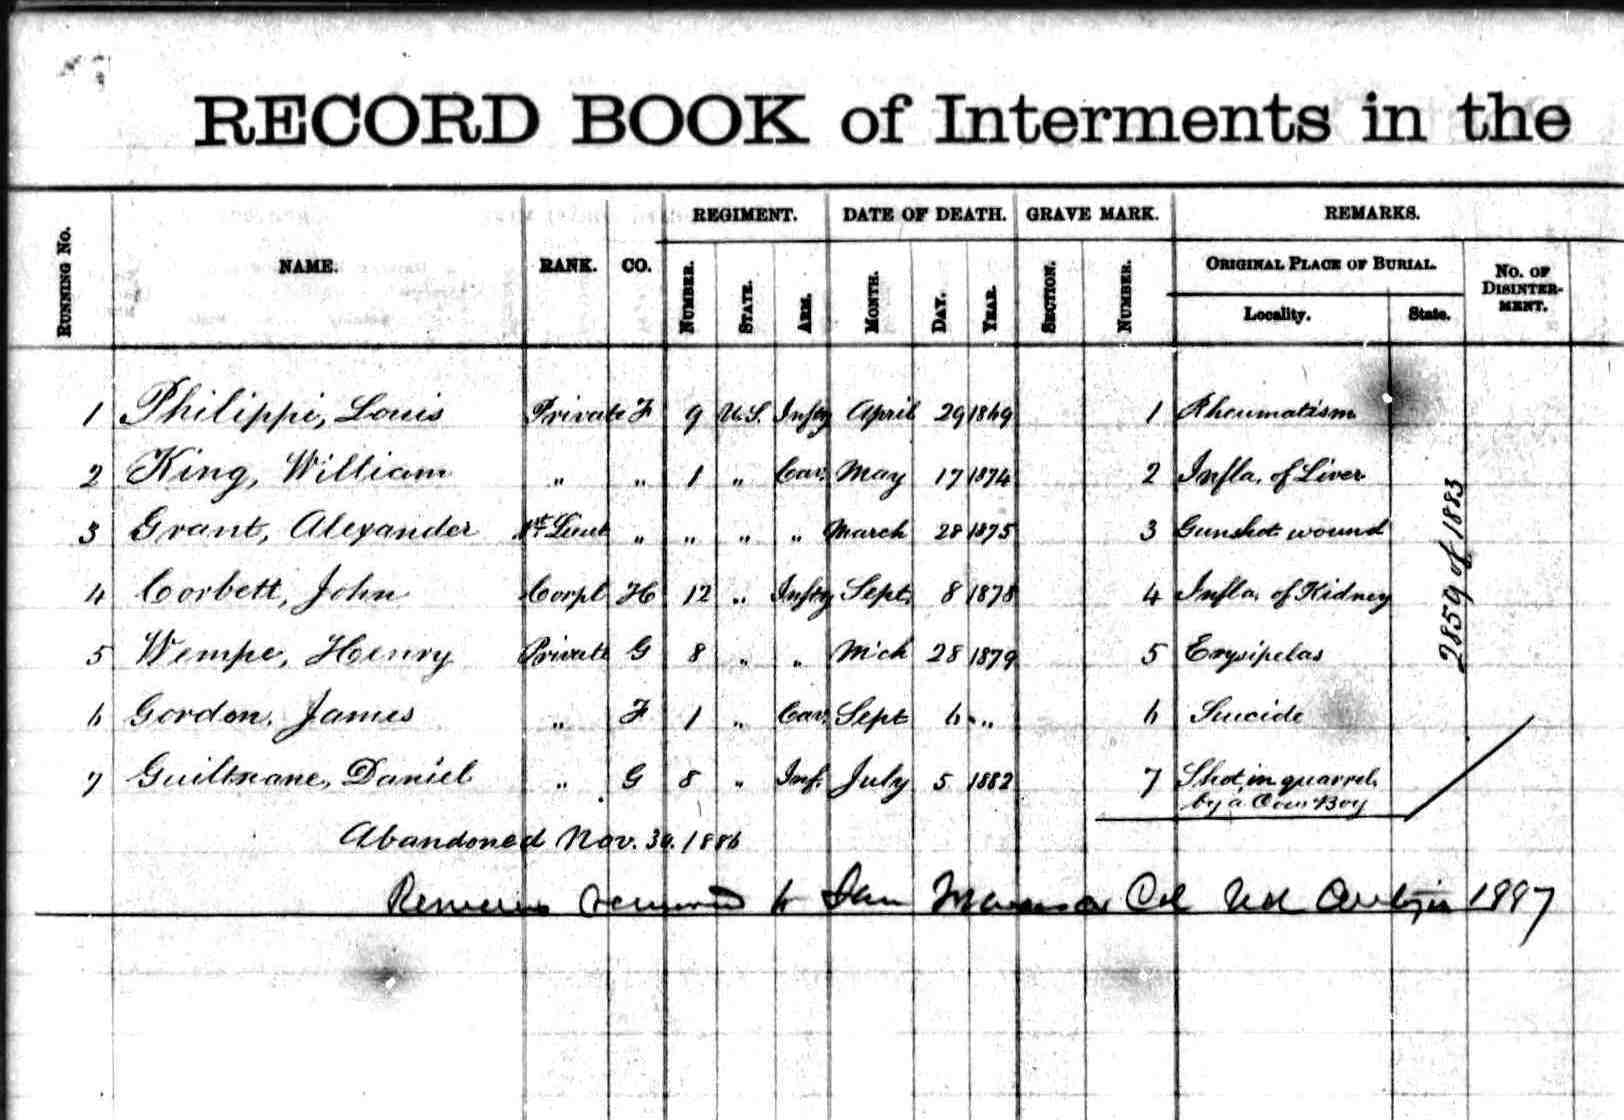 RECORD BOOK of Interments in the
REGIMENT. DATE OF DEATH. GRAVE MARK. REMARKS.
RUNNING No. NAME. RANK. CO. NUMBER. STATE. ARM. MONTH. DAY. YEAR. SECTION. NUMBER. ORIGINAL PLACE OF BURIAL. Locality. State. No. OF DISINTERMENT.
1 Philippi, Louis Private F 9 U.S. Infty April 29 1869 1 Rheumatism
2 King, William " " 1 " Cav. May 17 1874 2 Infla. of Liver
3 Grant, Alexander 1st Lieut " " " " March 28 1875 3 Gunshot wound
4 Corbett, John Corpl H 12 " Infty Sept. 8 1878 4 Infla. of Kidney
5 Wempe, Henry Private G 8 " " Mch 28 1879 5 Erysipelas
6 Gordon, James " F 1 " Cav. Sept 6 " 6 Suicide
7 Guiltnane, Daniel " G 8 " Inf. July 5 1882 7 Shot in quarrel
by a Cow Boy
2859 of 1883
Abandoned Nov. 30. 1886
Remains removed to San Cal Nat 1887